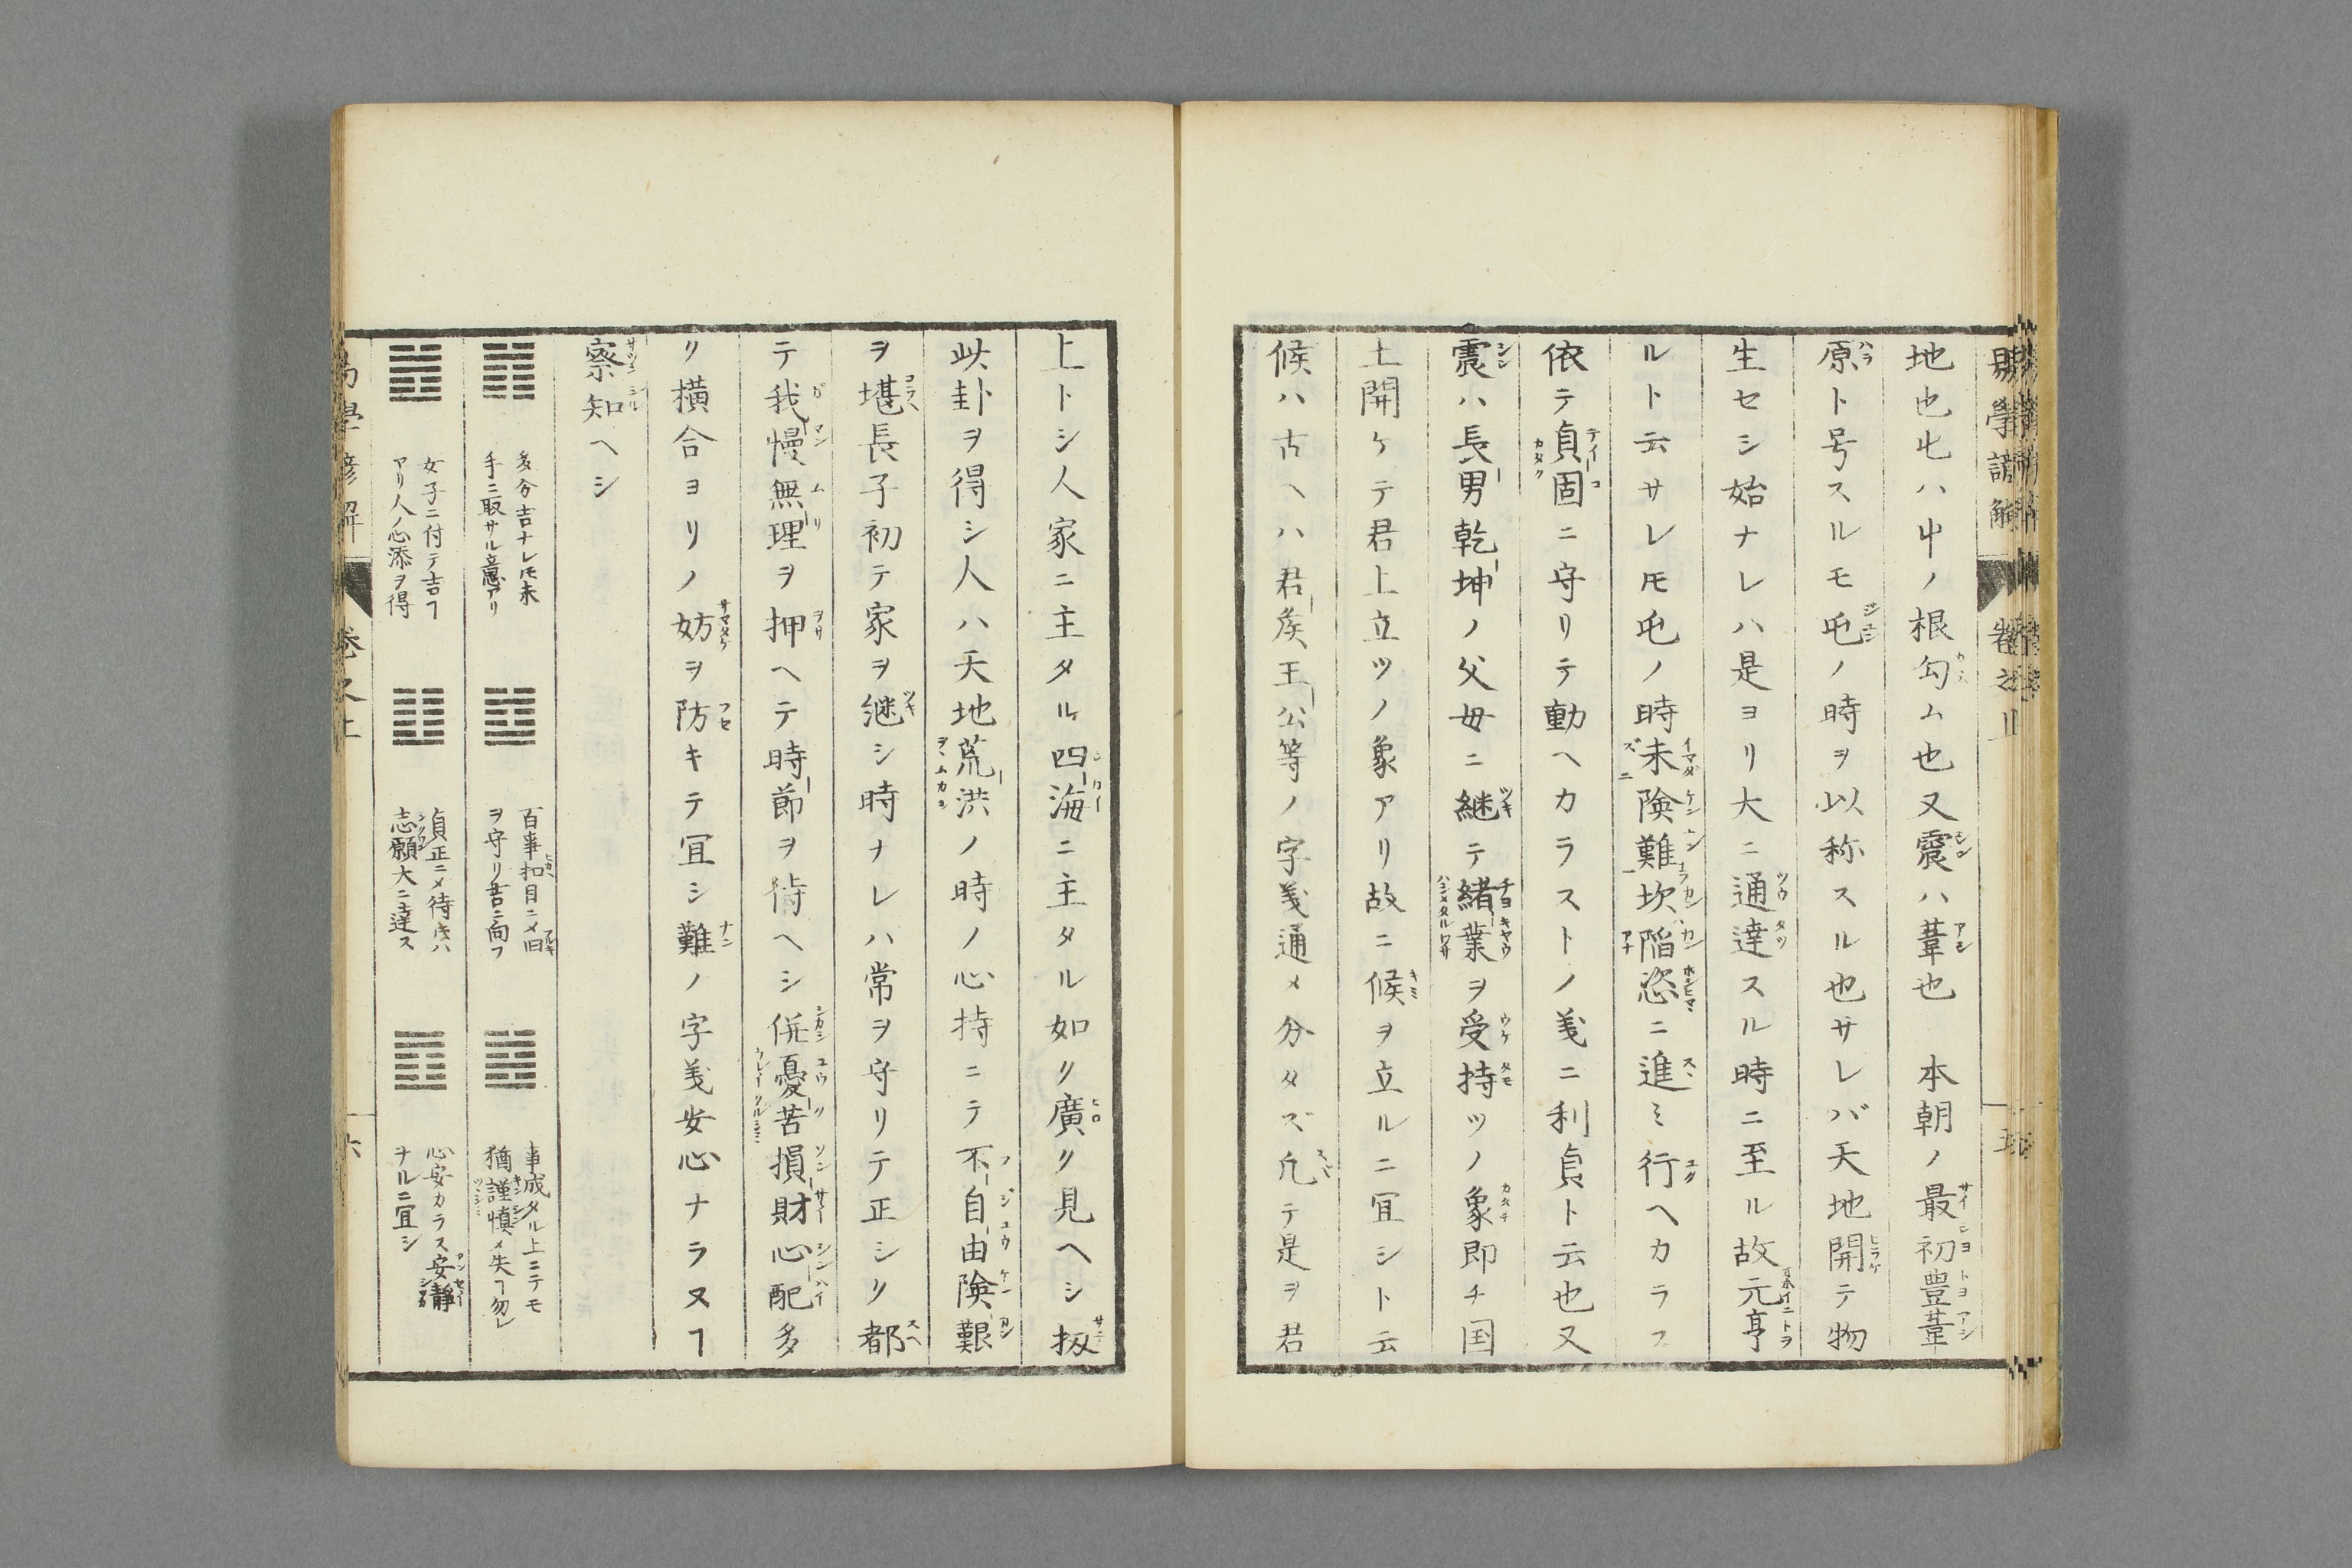 地也屯ハ屮ノ根勾ム也又震ハ葦也　本朝ノ最初豊葦
原ト号スルモ屯ノ時ヲ以称スル也サレバ天地開テ物
生セシ始ナレハ是ヨリ大ニ通達スル時ニ至ル故元亨
ルト云サレ𪜈屯ノ時未険難坎陷恣ニ進ミ行ヘカラス
依テ貞固ニ守リテ動ヘカラストノ義ニ利貞ト云也又
震ハ長男乾坤ノ父母ニ継テ緒業ヲ受持ツノ象即チ国
土開ケテ君上立ツノ象アリ故ニ候ヲ立ルニ宜シト云
候ハ古ヘハ君矦王公等ノ字義通メ分タズ凢テ是ヲ君
上トシ人家ニ主タル四海ニ主タル如リ廣リ見ヘシ扨
此卦ヲ得シ人ハ天地荒洪ノ時ノ心持ニテ不自由険艱
ヲ堪長子初テ家ヲ継シ時ナレハ常ヲ守リテ正シク都
テ我慢無理ヲ押ヘテ時節ヲ待ヘシ併憂苦損財心配多
リ横合ヨリノ妨ヲ防キテ宜シ難ノ字義安心ナラヌヿ
察知ヘシ
多分吉ナレ𪜈未
手ニ取サル意アリ
百事扣目ニメ旧
ヲ守リ吉ニ向フ
事成タル上ニテモ
猶謹慎メ失ヿ勿レ
女子ニ付テ吉ヿ
アリ人ノ心添ヲ得
貞正ニメ待キハ
志願大ニ達ス
心安カラス安靜
ナルニ宜シ
易學諺解　卷之上　六